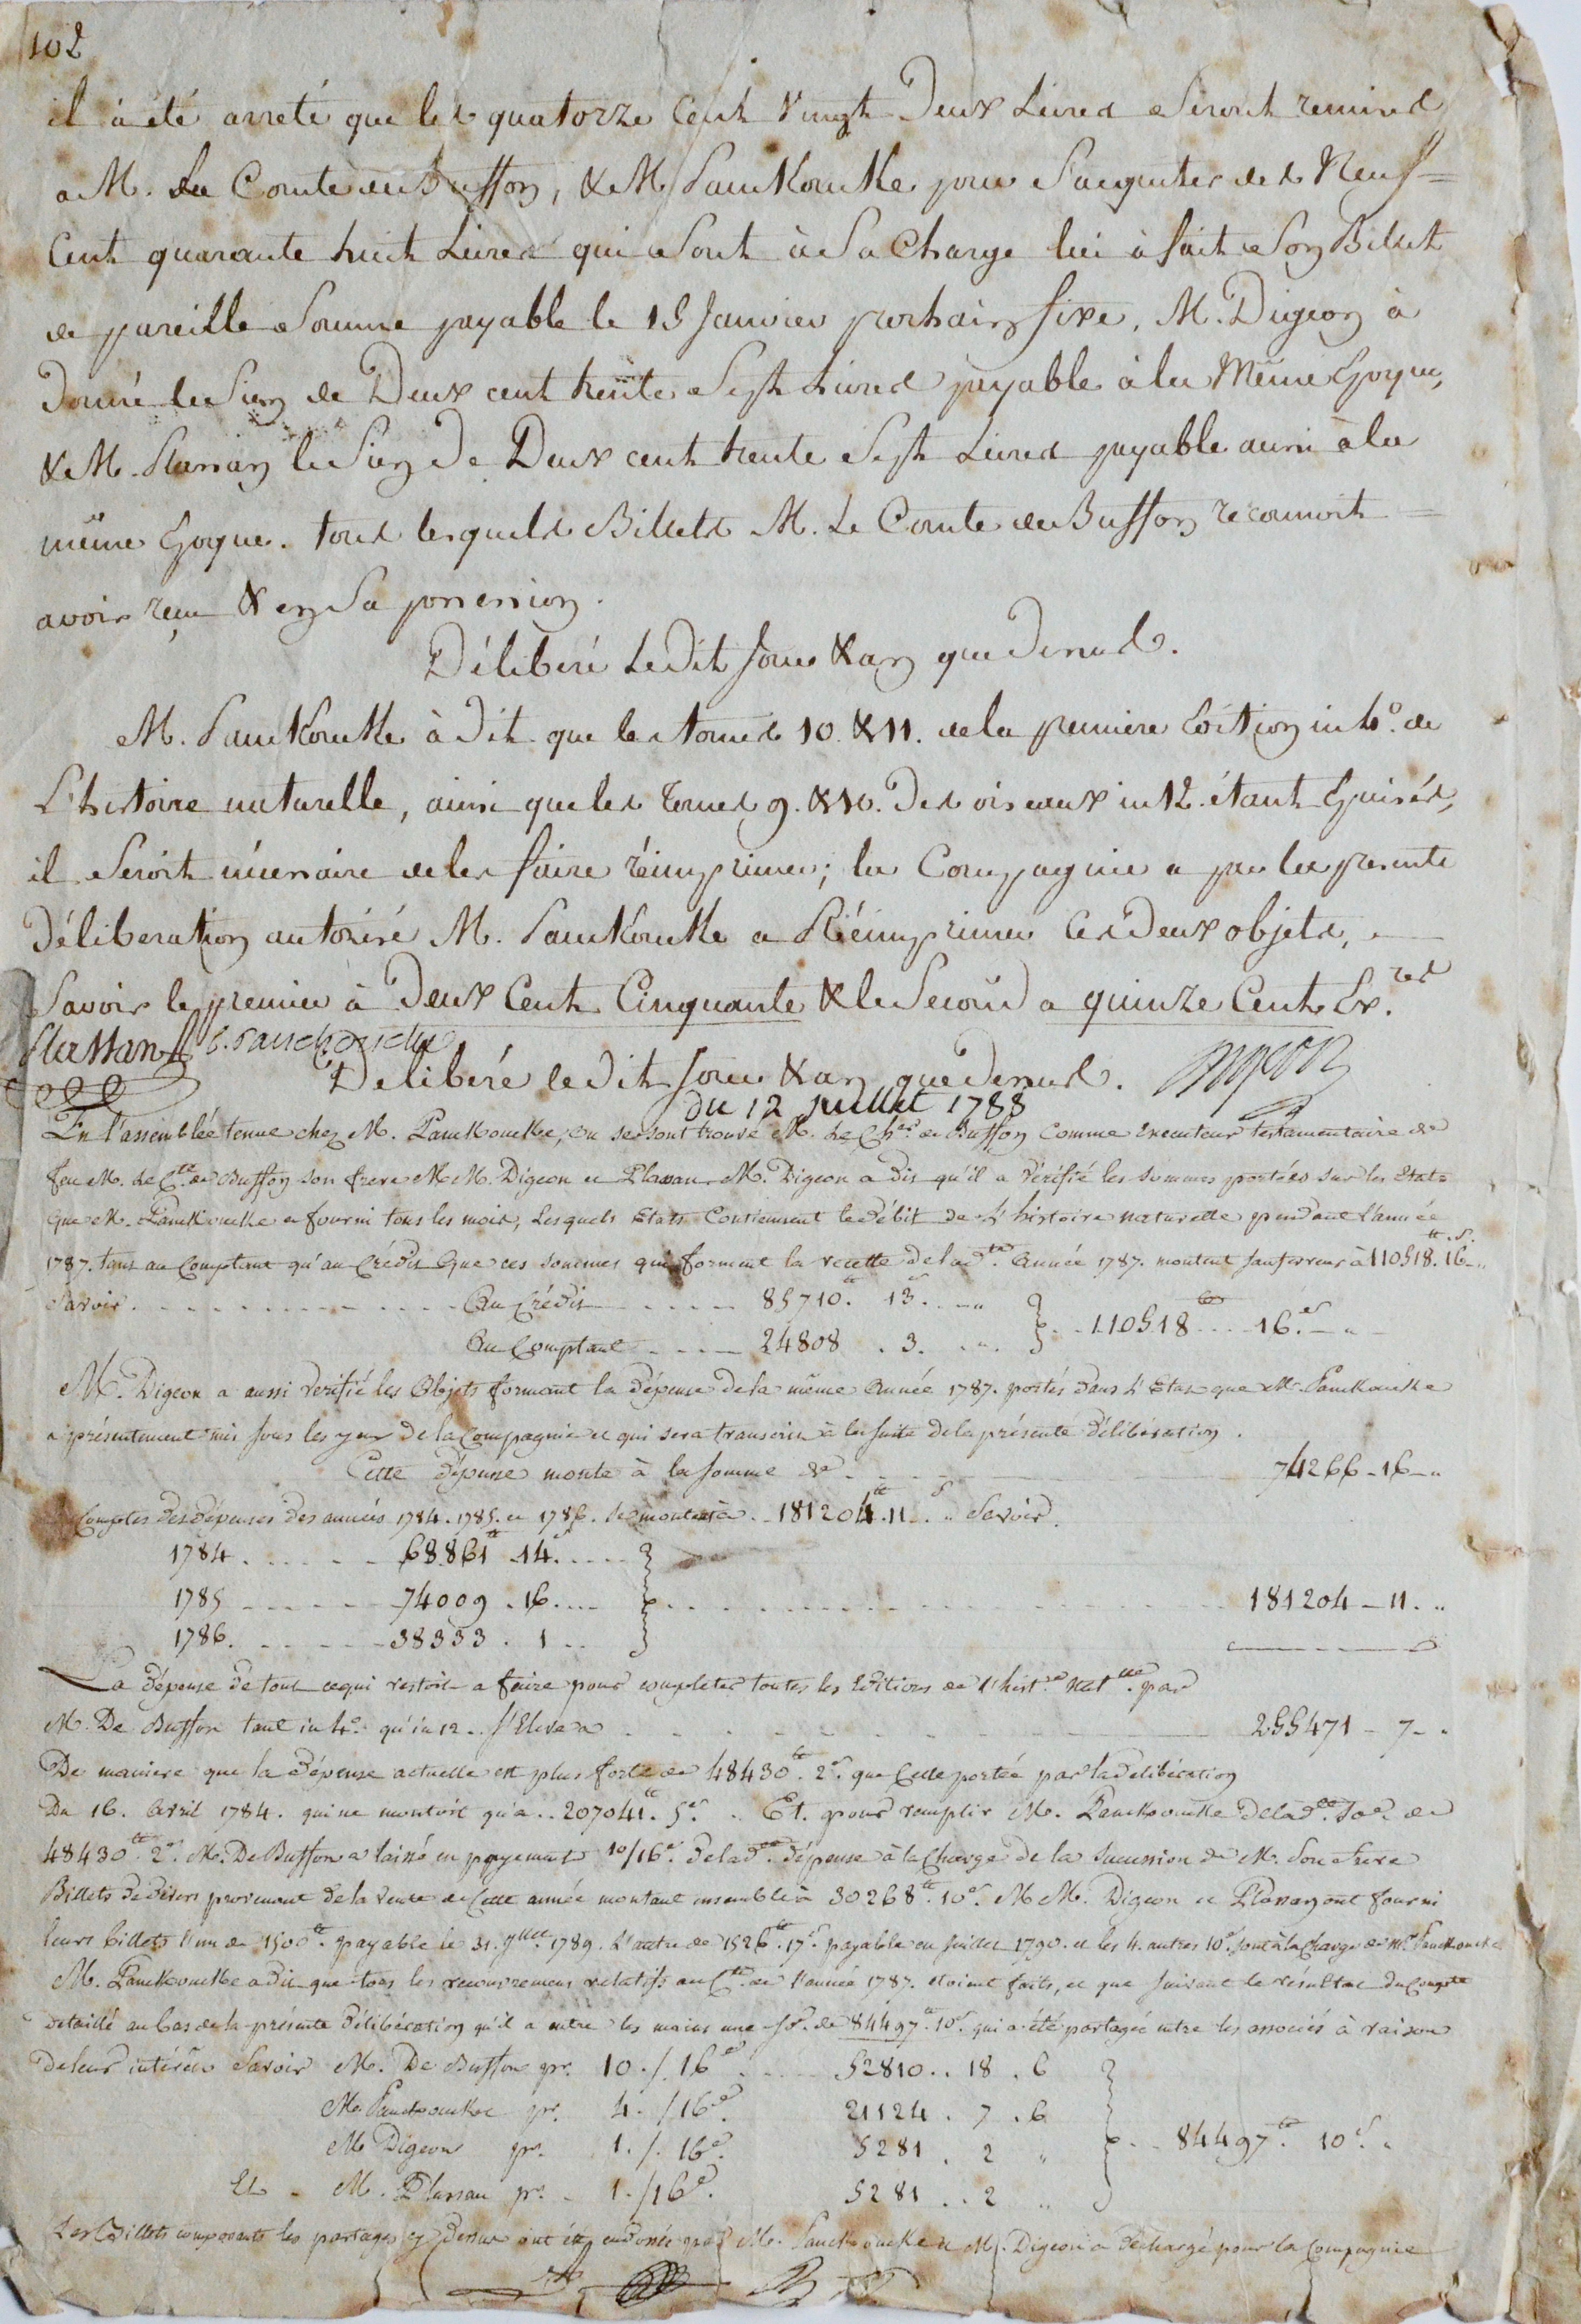 102
il à été arreté que les quatorze Cent Vingt Deux Livres seront remises
a M. Le Comte de Buffon, & M. Panckoucke pour s'acquiter des Neuf =
Cent quarante huit Livres qui sont à sa Charge lui à fait son Billet
de pareille somme payable le 15 Janvier prochain fixe, M. Digeon à
Donné le sien de Deux cent trente sept Livres payable à la Même Epoque,
& M. Plassan le sien de Deux cent trente sept Livres payable aussi à la
même Epoque. tous lesquels Billets M. Le Comte de Buffon reconnoit =
avoir reçu & en sa possession.
Délibéré Ledit Jour & an que dessus.
M. Panckoucke à dit que les tomes 10. & 11. de la premiere Edition in 4º. de
L'histoire naturelle, ainsi que les tomes 9. & 10. Des oiseaux in 12. étant Epuisés,
il seroit nécessaire de les faire réimprimer; la Compagnie a par la presente
Délibération autorisé M. Panckoucke a Réimprimer ces Deux objets,
Savoir le premier à Deux Cent Cinquante & le Second a quinze Cent Ex.res
Plassan C. Panckoucke
Delibéré ledit Jour & an que dessus. Digeon
du 12 Juillet 1788
En l'assemblée tenue chez M. Panckoucke, ou se sont trouvé M. Le Ch.er de Buffon Comme Executeur Testamentaire de
feu M. Le C.te de Buffon son frere M M. Digeon et Plassan M. Digeon a dit qu'il a vérifié les sommes portées sur les Etats
que M. Panckoucke a fourni tous les mois, Lesquels Etats Contiennent le débit de L'histoire naturelle pendant l'année
1787. tant au Comptant qu'au Crédit que ces sommes qui forment la recette de lad.te année 1787. montent sauf erreur à 110518.tt 16.s "
Savoir . . . . Au Crédit . . . . 85710.tt 13.s . . "
Au Comptant . . . . 24808 . 3 . . " } . . 110518.tt . . 16.s "
M. Digeon a aussi vérifié les Objets formant la dépense de la même Année 1787. portés dans L'Etat que M. Panckoucke
a présentement mis sous les yeux de la Compagnie et qui sera transcrit à la suite de la présente délibération.
Cette dépense monte à la somme de . . . . 74266 - 16 - "
Comptes des dépenses des années 1784. 1785. et 1786. se montent à . . 181204.tt 11.s " Savoir.
1784 . . . . 68861.tt 14.s . . }
1785 . . . . 74009 . 16 . . } . . . . 181204 - 11 . "
1786 . . . . 38333 . 1 . . }
La dépense de tout ce qui restoit a faire pour completer toutes les Editions de l'hist.re Nat.lle par
M. De Buffon tant in 4º. qu'in 12 . . s'Eleve a . . . . 255471 - 7 - "
De maniere que la dépense actuelle est plus forte de 48430.tt 2.s que Celle portée par la délibération
Du 16. Avril 1784. qui ne montoit qu'a . . 207041.tt 5.s . Et pour remplir M. Panckoucke de lad.te So.e de
48430.tt 2.s M. De Buffon a laissé en payement 10/16.e de lad.te dépense à la Charge de la Succession de M. Son frere
Billets de divers provenant de la vente de Cette année montant ensemble à 30268.tt 10.s M M. Digeon et Plassan ont fourni
leurs billets l'un de 1500.tt payable le 31. Juillet 1789. L'autre de 1526.tt 17.s payable en Juillet 1790. et les 4. autres 16.e sont à la Charge de M. Panckoucke
M. Panckoucke a dit que tous les recouvremens relatifs au C.te de l'année 1787. etoient faits, et que suivant le résultat du Compte
detaillé au bas de la présente délibération qu'il a entre les mains une So.e de 84497.tt 10.s qui a été partagée entre les associés à raison
de leurs intérêts Savoir M. De Buffon pr. 10./. 16.e . . . 52810 . . 18 . 6 }
M. Panckoucke pr. 4./16.e 21124 . 7 . 6 }
M. Digeon pr. 1./. 16.e 5281 . 2 " } . . 84497.tt 10.s "
Et . M. Plassan pr. 1./16.e 5281 . . 2 " }
Les Billets composants les partages cy dessus ont été endossés par M. Panckoucke et M. Digeon a déchargé pour la Compagnie